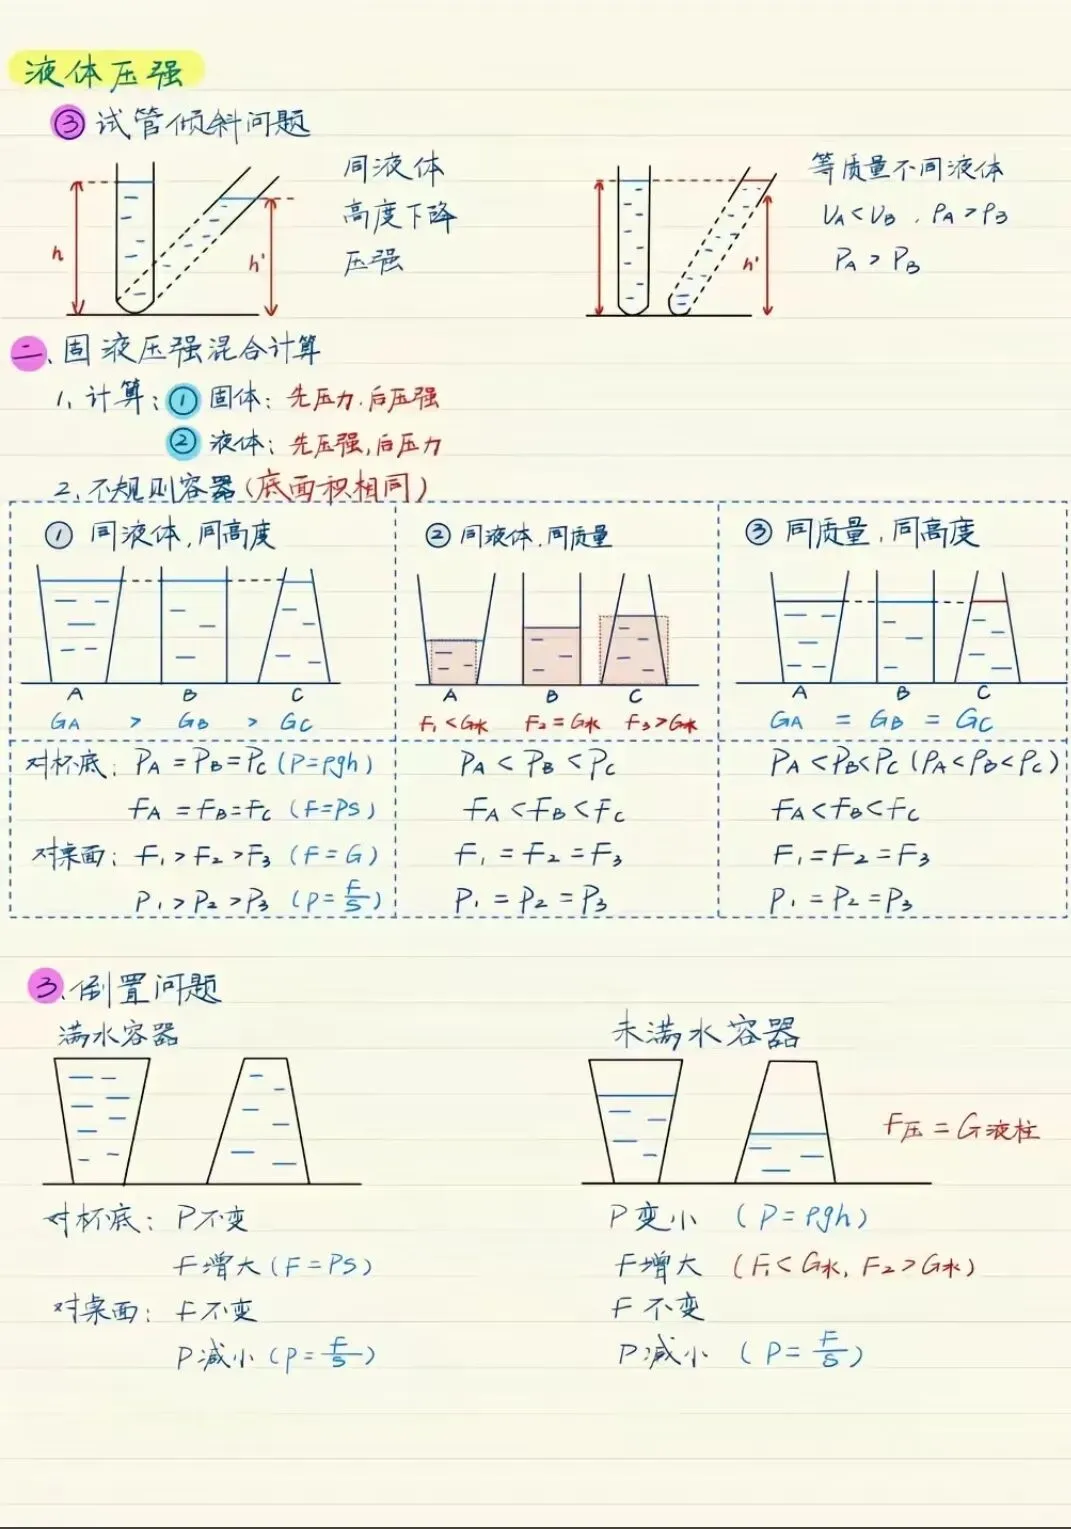 液体压强
③ 试管倾斜问题
同液体
高度下降
压强
h
h'
等质量不同液体
VA<VB，ρA>ρB
PA>PB
h'
二、固液压强混合计算
1、计算：① 固体：先压力.后压强
② 液体：先压强,后压力
2、不规则容器(底面积相同)
① 同液体,同高度
A B C
GA > GB > GC
② 同液体.同质量
A B C
F₁<G水 F₂=G水 F₃>G水
③ 同质量,同高度
A B C
GA = GB = GC
对杯底：PA=PB=PC (P=ρgh)
FA=FB=FC (F=PS)
对桌面：F₁>F₂>F₃ (F=G)
P₁>P₂>P₃ (P=F/S)
PA<PB<PC
FA<FB<FC
F₁=F₂=F₃
P₁=P₂=P₃
PA<PB<PC (ρA<ρB<ρC)
FA<FB<FC
F₁=F₂=F₃
P₁=P₂=P₃
3、倒置问题
满水容器
对杯底：P不变
F增大(F=PS)
对桌面：F不变
P减小(P=F/S)
未满水容器
F压=G液柱
P变小 (P=ρgh)
F增大 (F₁<G水,F₂>G水)
F不变
P减小 (P=F/S)